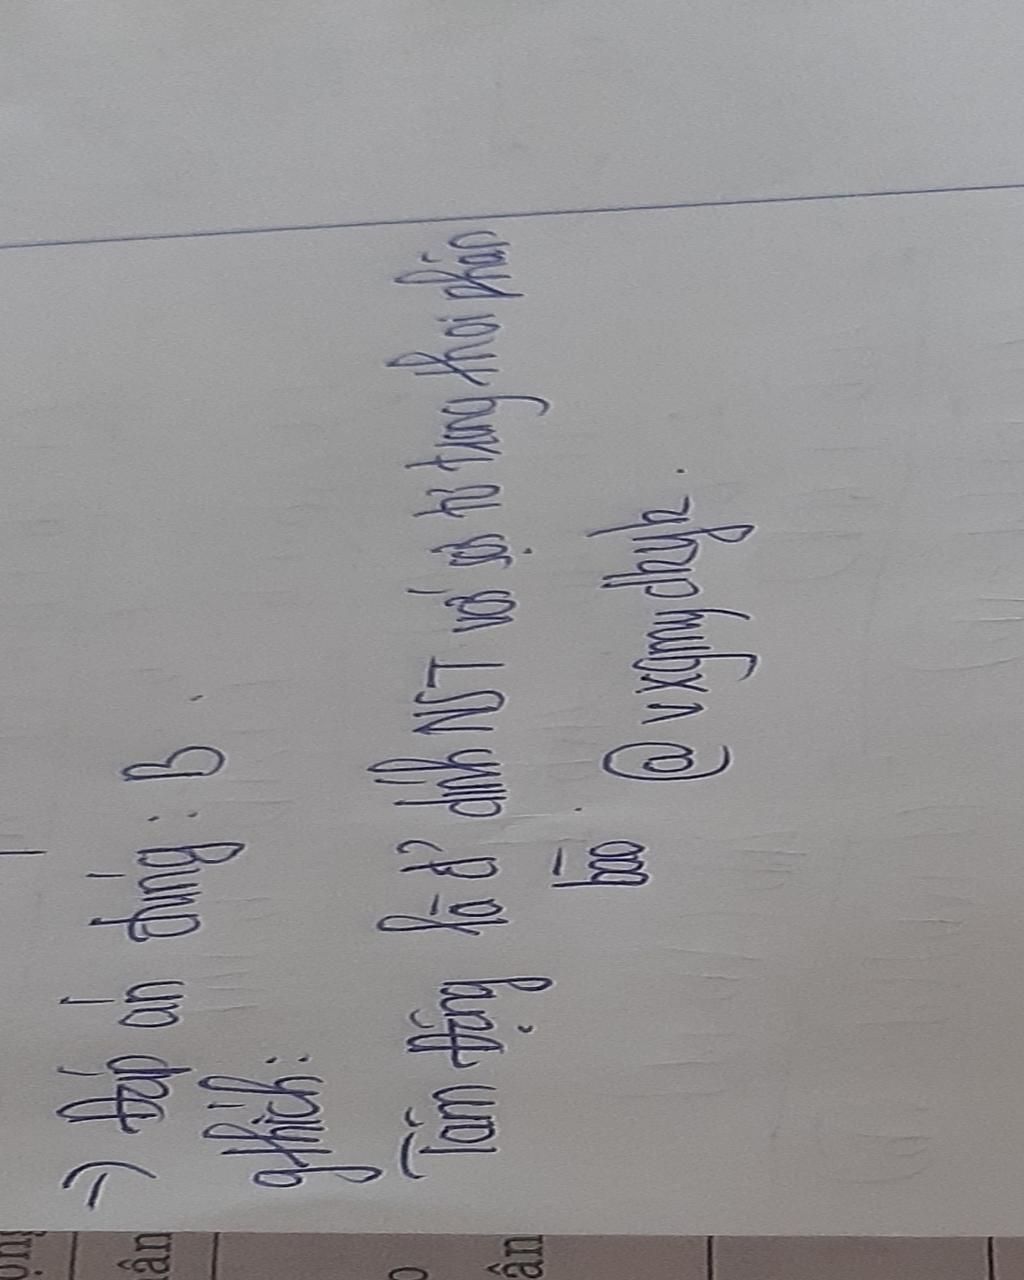 =) Đáp án đúng: B.
gthích:
Tâm động là đ² dính NST với sợi tơ trong thoi phân
bào. @vxgmydhyk.
ân
ân